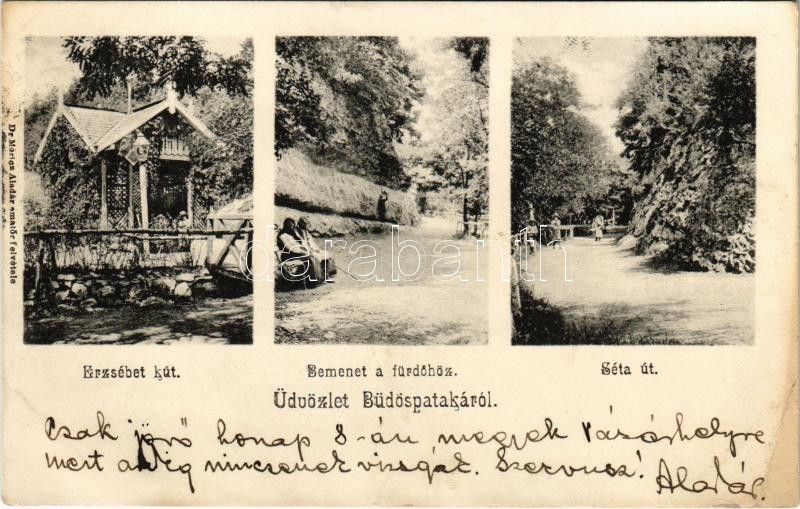 Dr Móricz Aladár amatőr felvétele
darabanth
Erzsébet kút.
Bemenet a fürdőhöz.
Séta út.
Üdvözlet Büdöspatakáról.
Csak jövő honap 8-án megyek Vásárhelyre
mert addig nincsenek vizsgák. Szervusz!
Aladár.